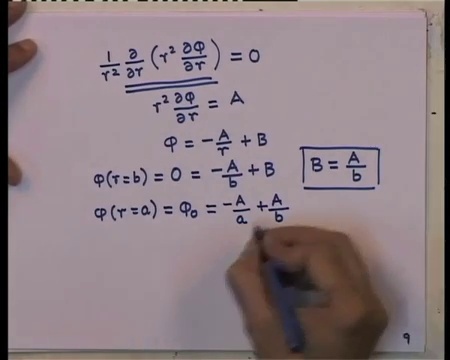 1/r² ∂/∂r (r² ∂Φ/∂r) = 0
r² ∂Φ/∂r = A
φ = -A/r + B
φ(r=b) = 0 = -A/b + B
B = A/b
φ(r=a) = Φ₀ = -A/a + A/b
9